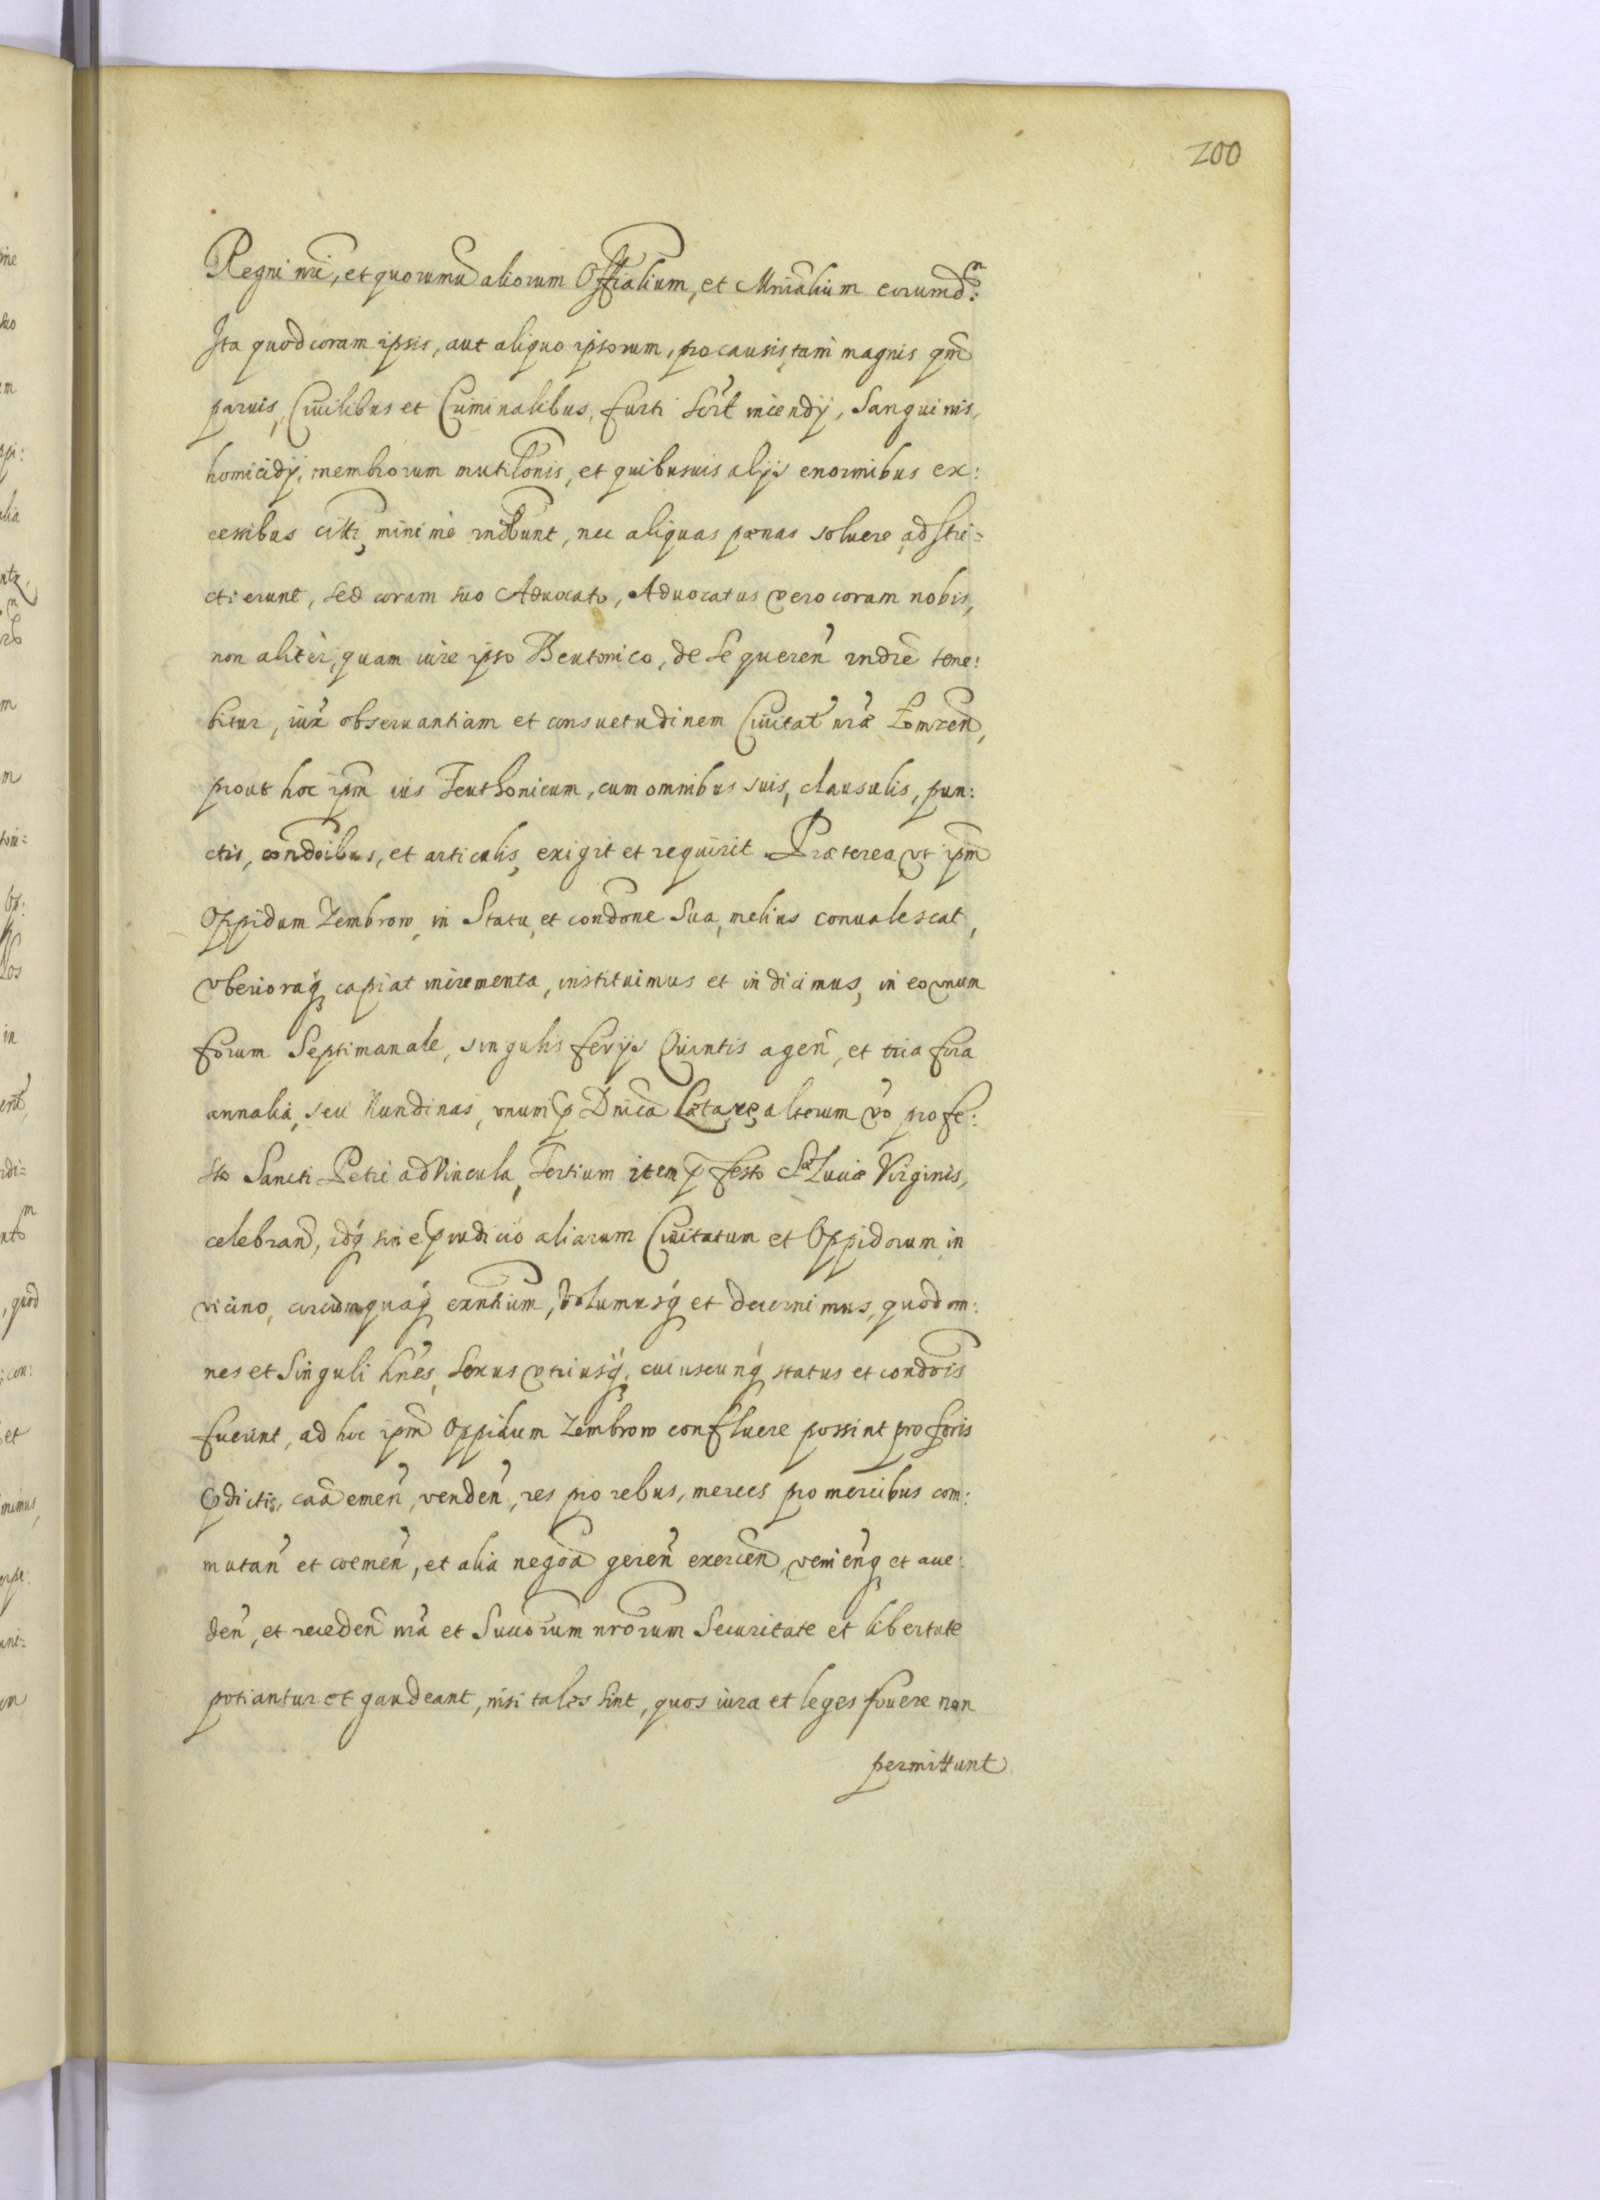 200
Regni nri, et quorumvis aliorum Offialium, et Mnrialium eorumd:
Ita quod coram ipsis, aut aliquo ipsorum, pro causis, tam magnis qm
paruis, Ciuilibus et Criminalibus, furti incendÿ, Sanguinis,
homicidÿ, membrorum mutilonis, et quibusuis alÿs enormibus ex:
cessibus citti, minime rndbunt, nec aliquas pænas soluere, adstri=
cti erunt, sed coram suo Aduocato, Aduocatus vero coram nobis,
non aliter, quam iure ipso Theutonico, de se queren rndre tene:
bitur, iuxa obseruantiam et consuetudinem Ciuitat nræ Łomzen,
prout hoc ipm ius Teuthonicum, cum omnibus suis, clausulis, pun:
ctis, condoibus, et articulis, exigit et requirit. Præterea, vt ipm
Oppidum Zembrow, in Statu, et condone Sua, melius conualescat,
vberioraq capiat incrementa, instituimus et indicimus, in eo vnum
forum Septimanale, singulis ferÿs Quintis agen, et tria fora
annalia, seu Nundinas, vnum p Dnica Lætare, alterum vo pro fe:
sto Sancti Petri ad Vincula, Tertium item p festo Sæ Luciæ Virginis,
celebrand, idq sine piudicio aliarum Ciuitatum et Oppidorum, in
vicino, circumquaq exntium, Volumusq et decernimus, quod om:
nes et Singuli hnes, Sexus vtriusq, cuiuscunq status et condois
fuerint, ad hoc ipm Oppidum Zembrow confluere possint pro foris
pdictis, caa emen, venden, res pro rebus, merces pro mercibus com:
mutan et coemen, et alia negoa geren exercen, venienq et aue:
den, et receden nra et Succorum nrorum Securitate et libertate
potiantur et gaudeant, nisi tales sint, quos iura et leges fouere non
permittunt